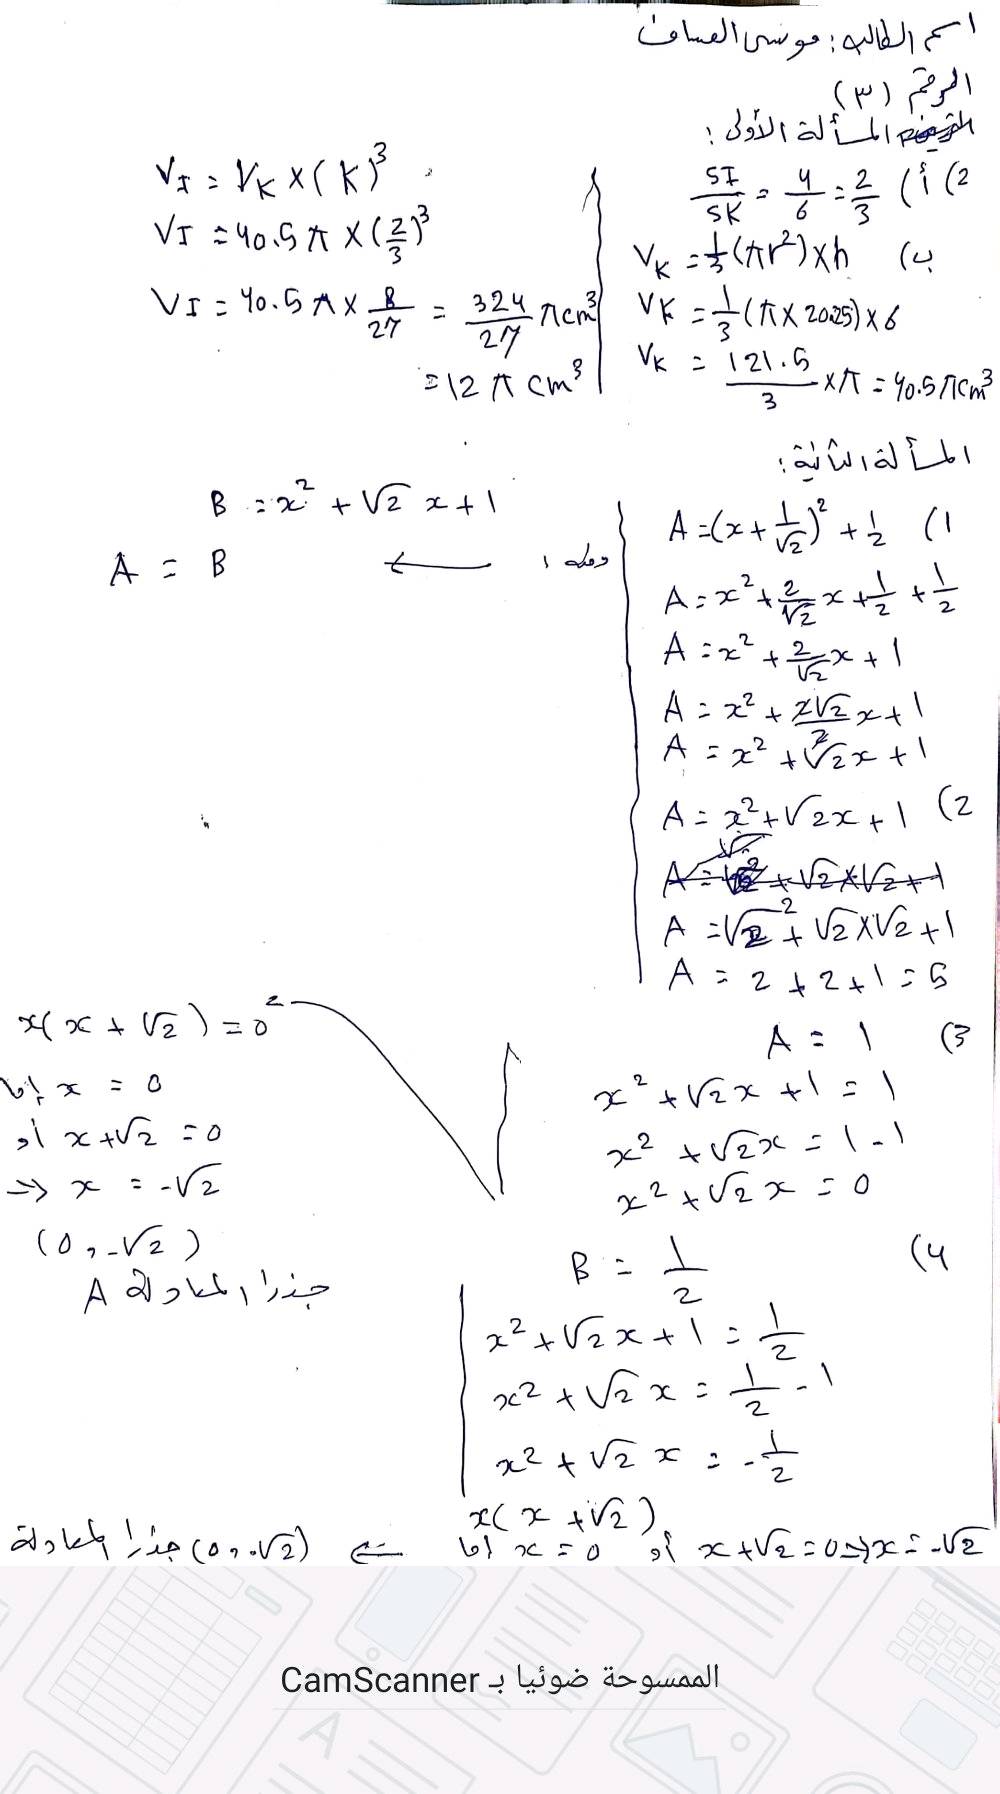 اسم الطالب: موسى العساف
الرقم (٣)
المسألة الأولى:
2) أ) SI/SK = 4/6 = 2/3
ب) V_K = 1/3 (πr²) × h
V_K = 1/3 (π × 20.25) × 6
V_K = 121.5/3 × π = 40.5 π cm³
V_I = V_K × (K)³
V_I = 40.5 π × (2/3)³
V_I = 40.5 π × 8/27 = 324/27 π cm³
= 12 π cm³
المسألة الثانية:
1) A = (x + 1/√2)² + 1/2
A = x² + 2/√2 x + 1/2 + 1/2
A = x² + 2/√2 x + 1
A = x² + 2√2/2 x + 1
A = x² + √2 x + 1
B = x² + √2 x + 1
ومنه ← A = B
2) A = x² + √2 x + 1
A = √2² + √2 × √2 + 1
A = 2 + 2 + 1 = 5
3) A = 1
x² + √2 x + 1 = 1
x² + √2 x = 1 - 1
x² + √2 x = 0
x(x + √2) = 0
إما x = 0
أو x + √2 = 0
⇒ x = -√2
(0, -√2)
جذرا المعادلة A
4) B = 1/2
x² + √2 x + 1 = 1/2
x² + √2 x = 1/2 - 1
x² + √2 x = -1/2
x(x + √2)
إما x = 0 أو x + √2 = 0 ⇒ x = -√2
⇐ (0, -√2) جذرا المعادلة
الممسوحة ضوئيا بـ CamScanner